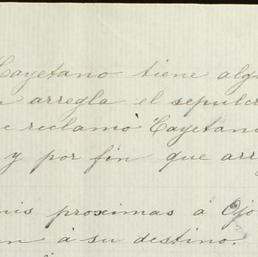 Cayetano tiene alg
arregla el sepulcr
e reclamó Cayetano
y por fin que arr
mis proximas á Ojo
n á su destino.